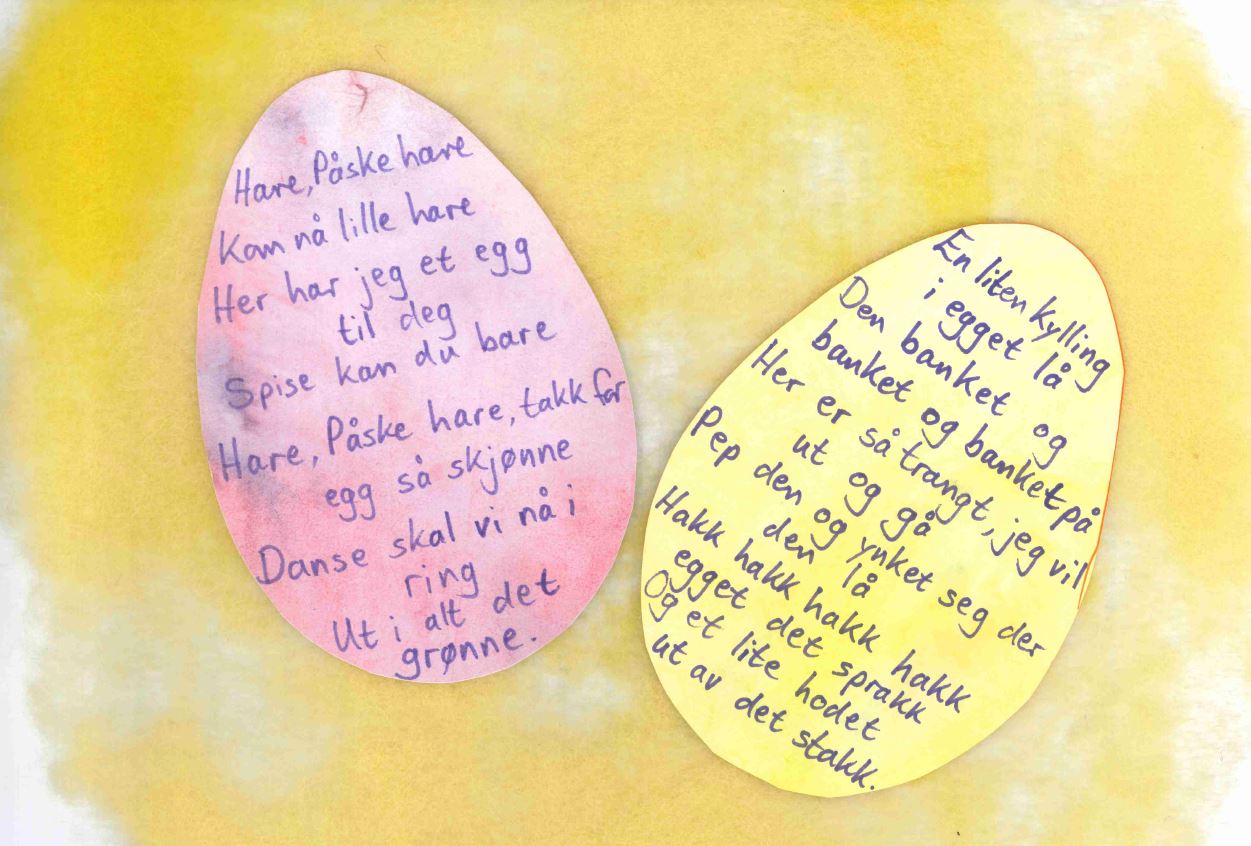 Hare, Påske hare
Kom nå lille hare
Her har jeg et egg
til deg
Spise kan du bare
Hare, Påske hare, takk for
egg så skjønne
Danse skal vi nå i
ring
Ut i alt det
grønne.
En liten kylling
i egget lå
Den banket og
banket og banket på
Her er så trangt, jeg vil
ut og gå
Pep den og ynket seg der
den lå
Hakk hakk hakk hakk
egget det sprakk
Og et lite hodet
ut av det stakk.